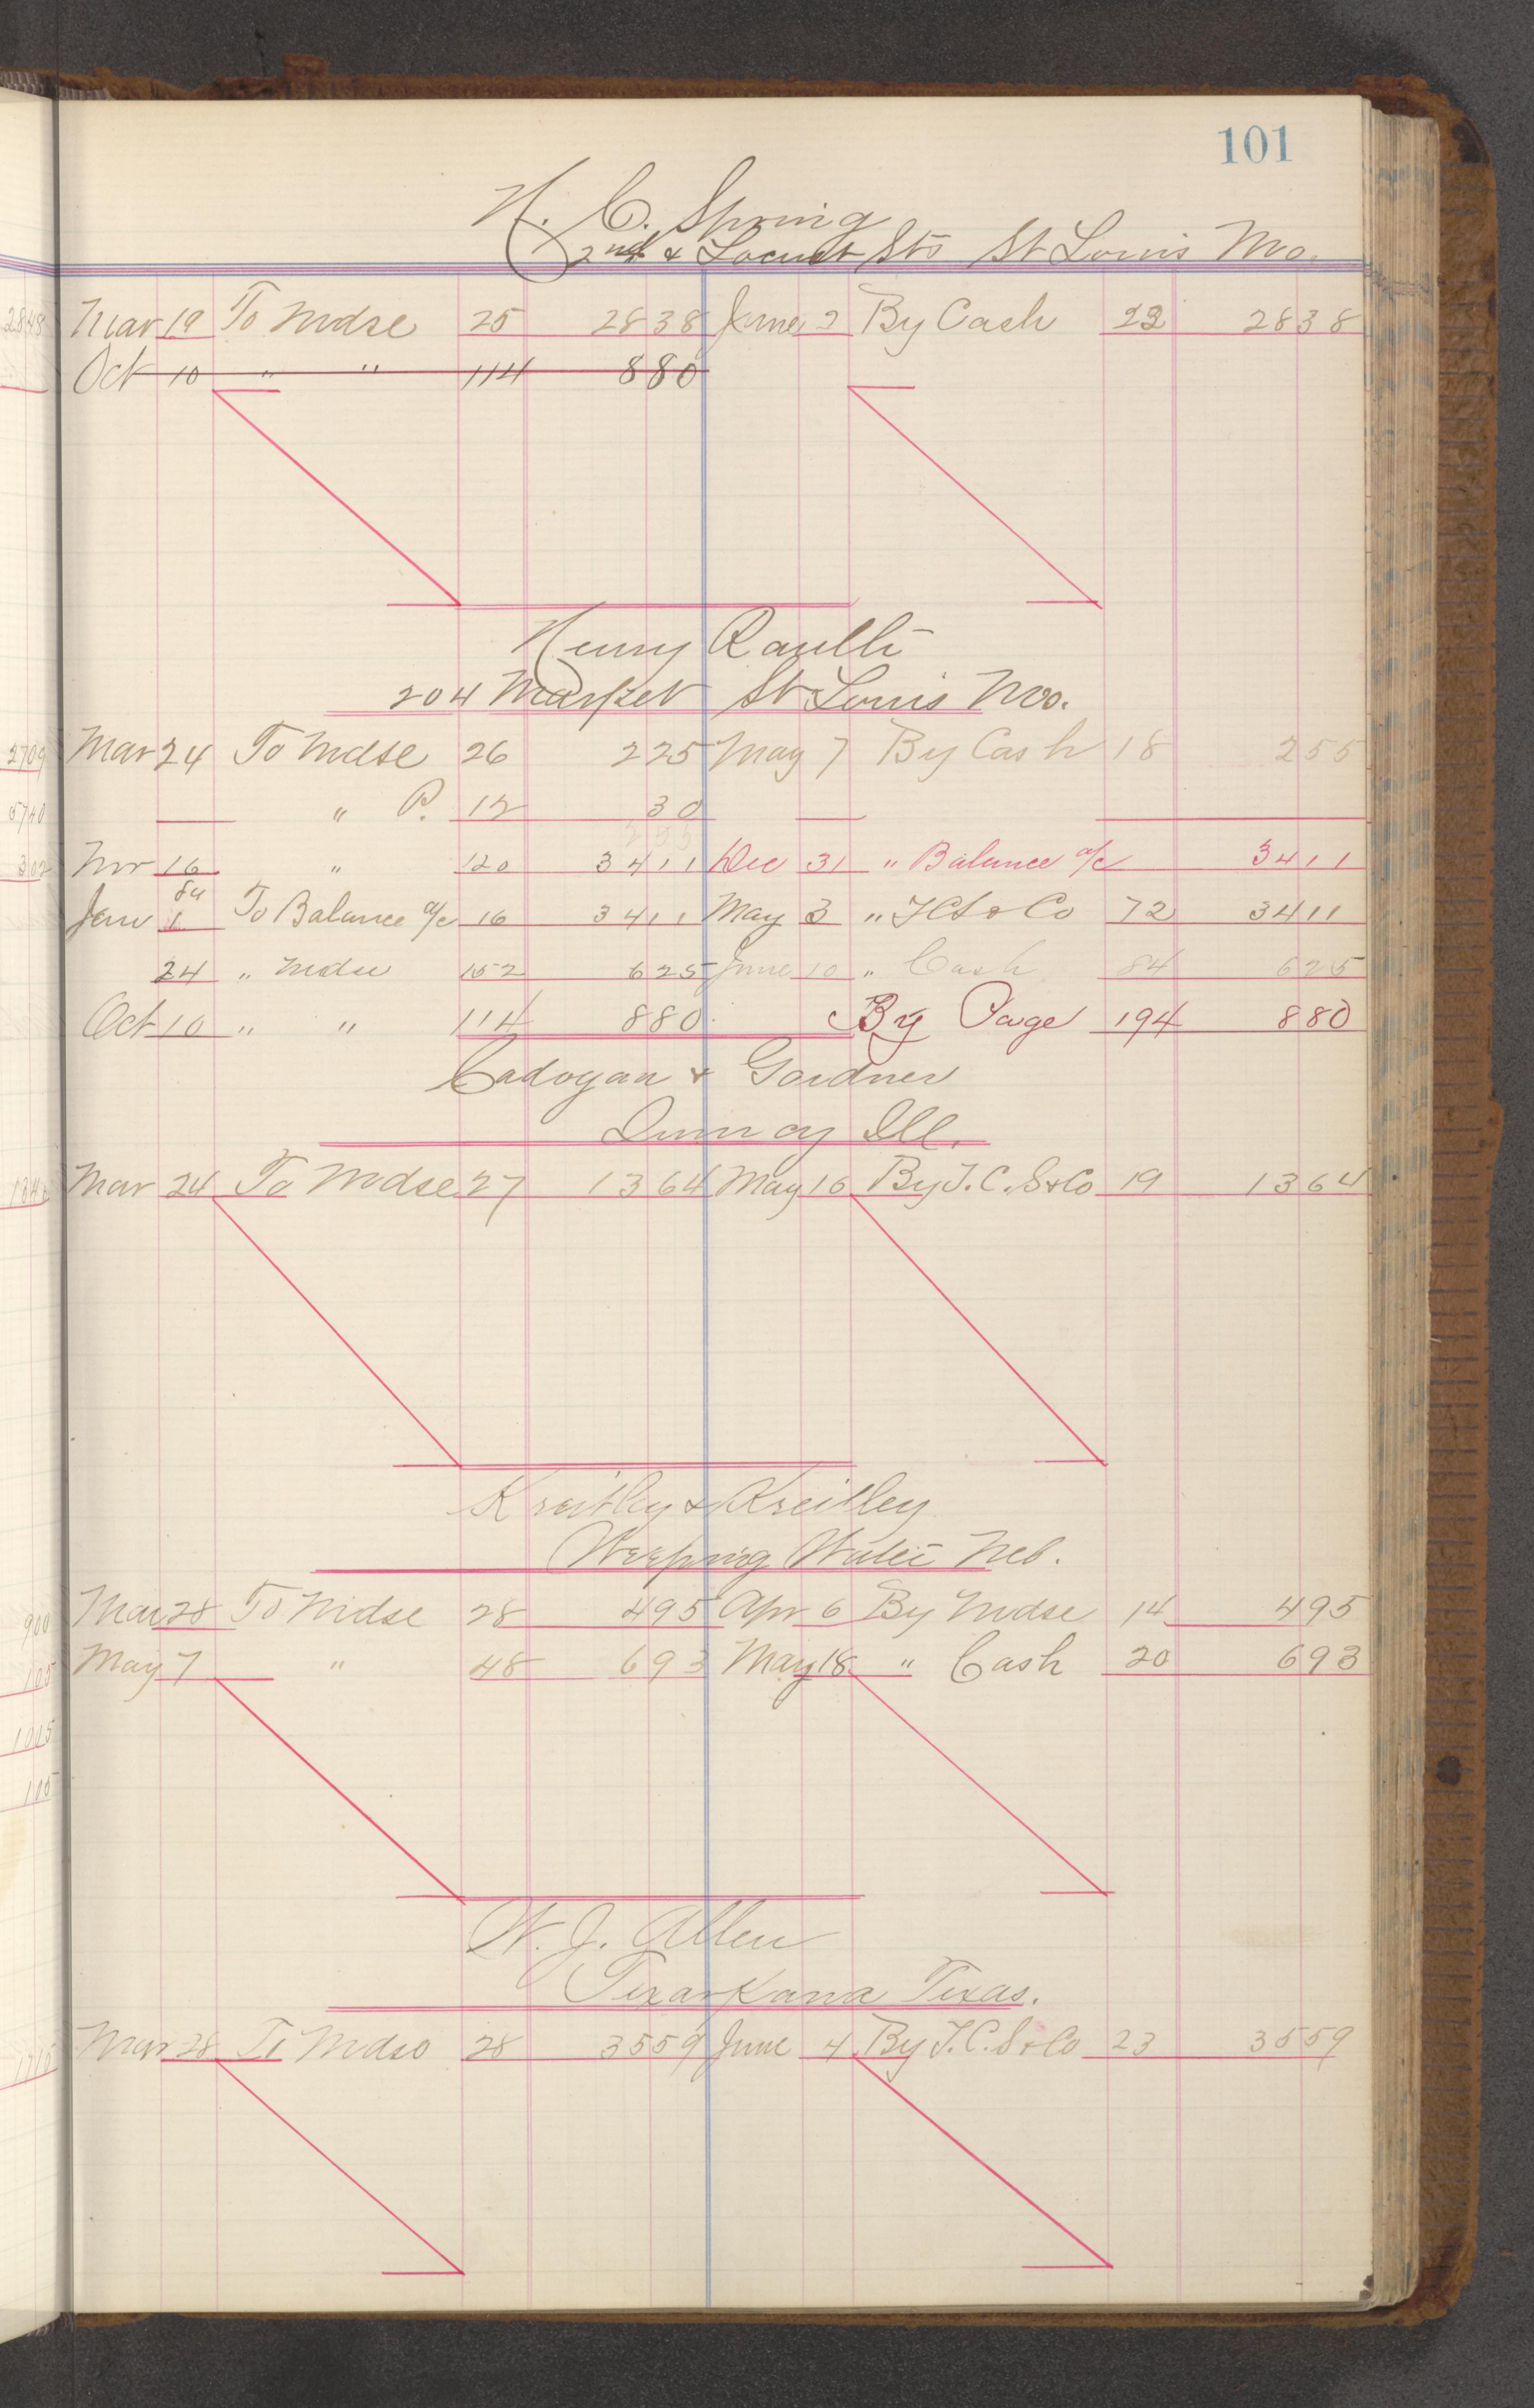 101
H. C. Spring
2nd & Locust Sts St Louis Mo.
Mar 19 To Mdse 25 2838 June 2 By Cash 23 2838
Oct 10 " " 114 880
Henry
204 Market St Louis Mo.
Mar 24 To Mdse 26 225 May 7 By Cash 18 255
" P. 12 30
255
Nov 16 " 120 3411 Dec 31 " Balance a/c 3411
84
Jan 1 To Balance a/c 16 3411 May 3 " & Co 72 3411
24 " Mdse 152 625 June 10 " Cash 84 625
Oct 10 " " 114 880 By Page 194 880
Cadogan & Gardner
Quincy Ill.
Mar 24 To Mdse 27 1364 May 16 By J. C. S & Co 19 1364
Kreitley & Kreitley
Weeping Water Neb.
Mar 28 To Mdse 28 495 Apr 6 By Mdse 14 495
May 7 " 48 693 May 18 " Cash 20 693
W. J. Allen
Texarkana Texas.
Mar 28 To Mdse 28 3559 June 4 By J. C. S & Co 23 3559